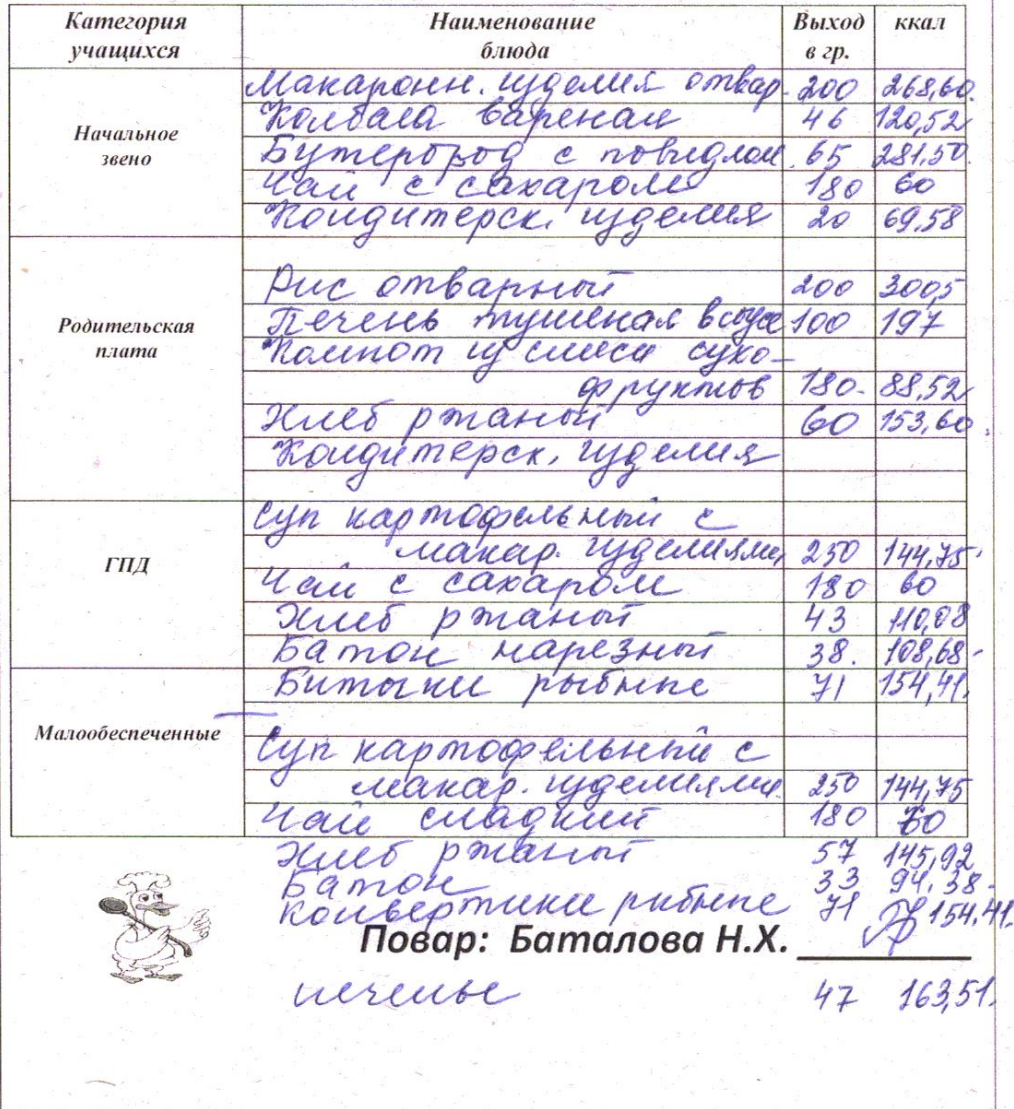 Категория учащихся Наименование блюда Выход в гр. ккал
Начальное звено
Макаронн. изделия отвар. 200 268,60.
Колбаса вареная 46 120,52
Бутерброд с повидлом. 65 281,50.
Чай с сахаром 180 60
Кондитерск. изделия 20 69,58
Родительская плата
Рис отварный 200 300,5
Печень тушеная в соусе 100 197
Компот из смеси сухо-
фруктов 180. 88,52
Хлеб ржаной 60 153,60.
Кондитерск. изделия
ГПД
Суп картофельный с
макар. изделиями 250 144,75.
Чай с сахаром 180 60
Хлеб ржаной 43 110,08
Батон нарезной 38. 108,68-
Биточки рыбные 71 154,41.
Малообеспеченные
Суп картофельный с
макар. изделиями. 250 144,75
Чай сладкий 180 60
Хлеб ржаной 57 145,92
Батон 33 94,38-
Конвертики рыбные 71 154.41.
Повар: Баталова Н.Х.
печенье 47 163,51.